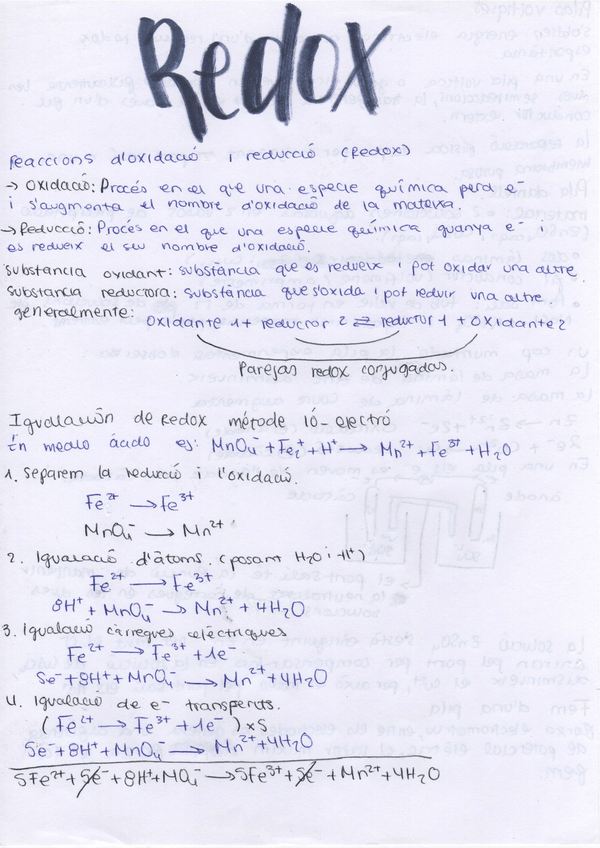 Redox
Reaccions d'oxidació i reducció (Redox)
→ Oxidació: Procés en el que una especie química perd e-
i s'augmenta el nombre d'oxidació de la materia.
→ Reducció: Procés en el que una especie química guanya e- i
es redueix el seu nombre d'oxidació.
Substancia oxidant: substància que es redueix i pot oxidar una altre.
Substancia reductora: substància que s'oxida i pot reduir una altre.
generalmente:
Oxidante 1 + reductor 2 ⇄ reductor 1 + Oxidante 2
Parejas redox conjugadas.
Igualación de Redox métode ió-electró
En medio ácido es: MnO₄⁻ + Fe₂⁺ + H⁺ → Mn²⁺ + Fe³⁺ + H₂O
1. Separem la reducció i l'oxidació.
Fe²⁺ → Fe³⁺
MnO₄⁻ → Mn²⁺
2. Igualació d'àtoms. (posant H₂O i H⁺)
Fe²⁺ → Fe³⁺
8H⁺ + MnO₄⁻ → Mn²⁺ + 4H₂O
3. Igualació càrregues elèctriques
Fe²⁺ → Fe³⁺ + 1e⁻
5e⁻ + 8H⁺ + MnO₄⁻ → Mn²⁺ + 4H₂O
4. Igualació de e⁻ transferits.
(Fe²⁺ → Fe³⁺ + 1e⁻) x5
5e⁻ + 8H⁺ + MnO₄⁻ → Mn²⁺ + 4H₂O
5Fe²⁺ + 5e⁻ + 8H⁺ + MO₄⁻ → 5Fe³⁺ + 5e⁻ + Mn²⁺ + 4H₂O